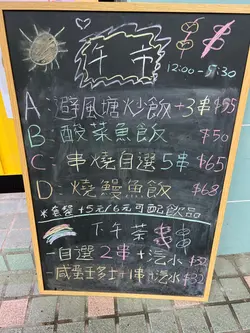 午市
12:00-5:30
A: 避風塘炒飯+3串$95
B: 酸菜魚飯 $50
C: 串燒自選5串$65
D: 燒鰻魚飯 $68
*套餐+5元/6元可配飲品
下午茶
-自選2串+汽水$32
-咸蛋王多士+1串+汽水$32